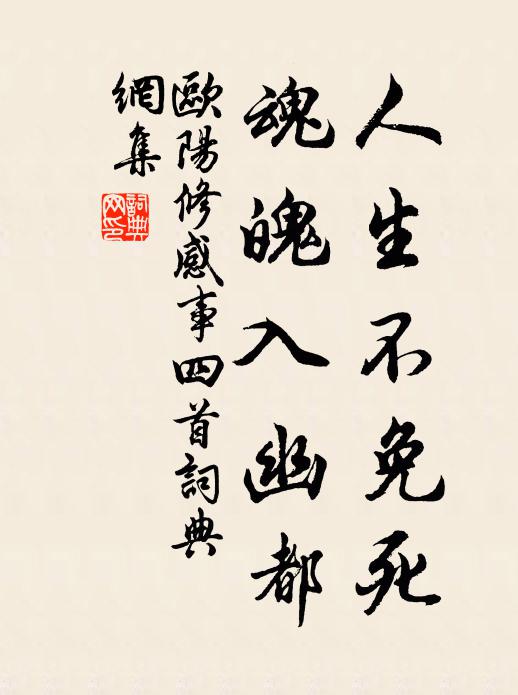 人生不免死
魂魄入幽都
歐陽修感事四首詞典
網集
詞典
网印